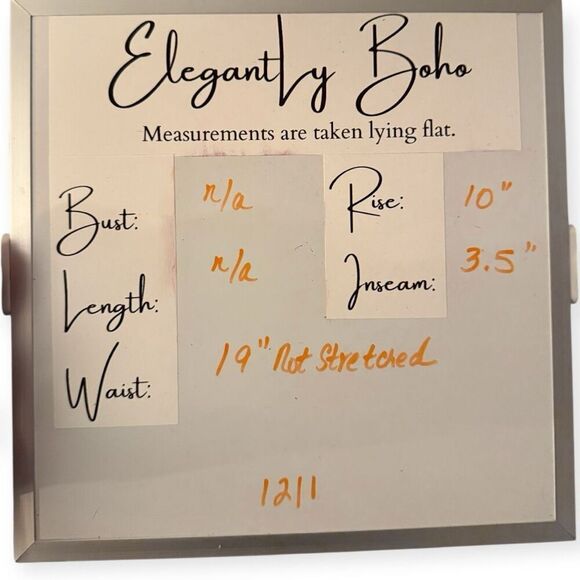 Elegantly Boho
Measurements are taken lying flat.
Bust: n/a
Rise: 10"
Length: n/a
Inseam: 3.5"
Waist: 19" Not Stretched
1211